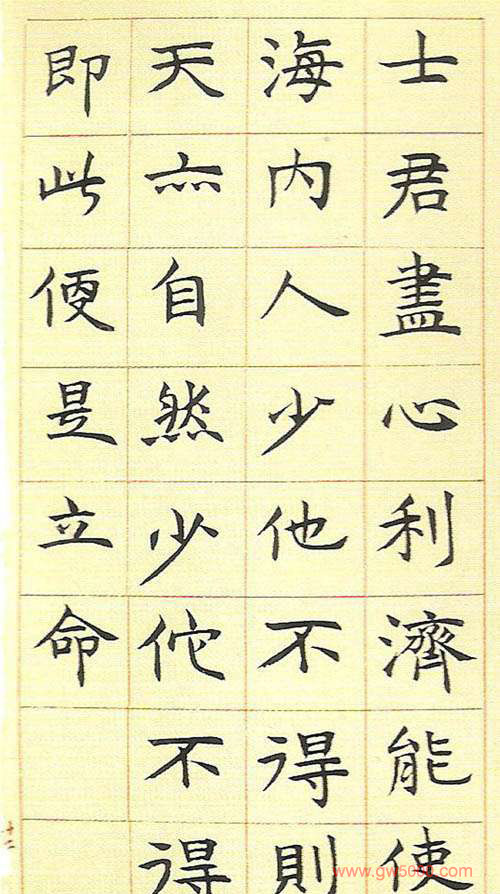 士君盡心利濟能使
海内人少他不得則
天亦自然少佗不得
即此便是立命
十二
www.gw5000.com